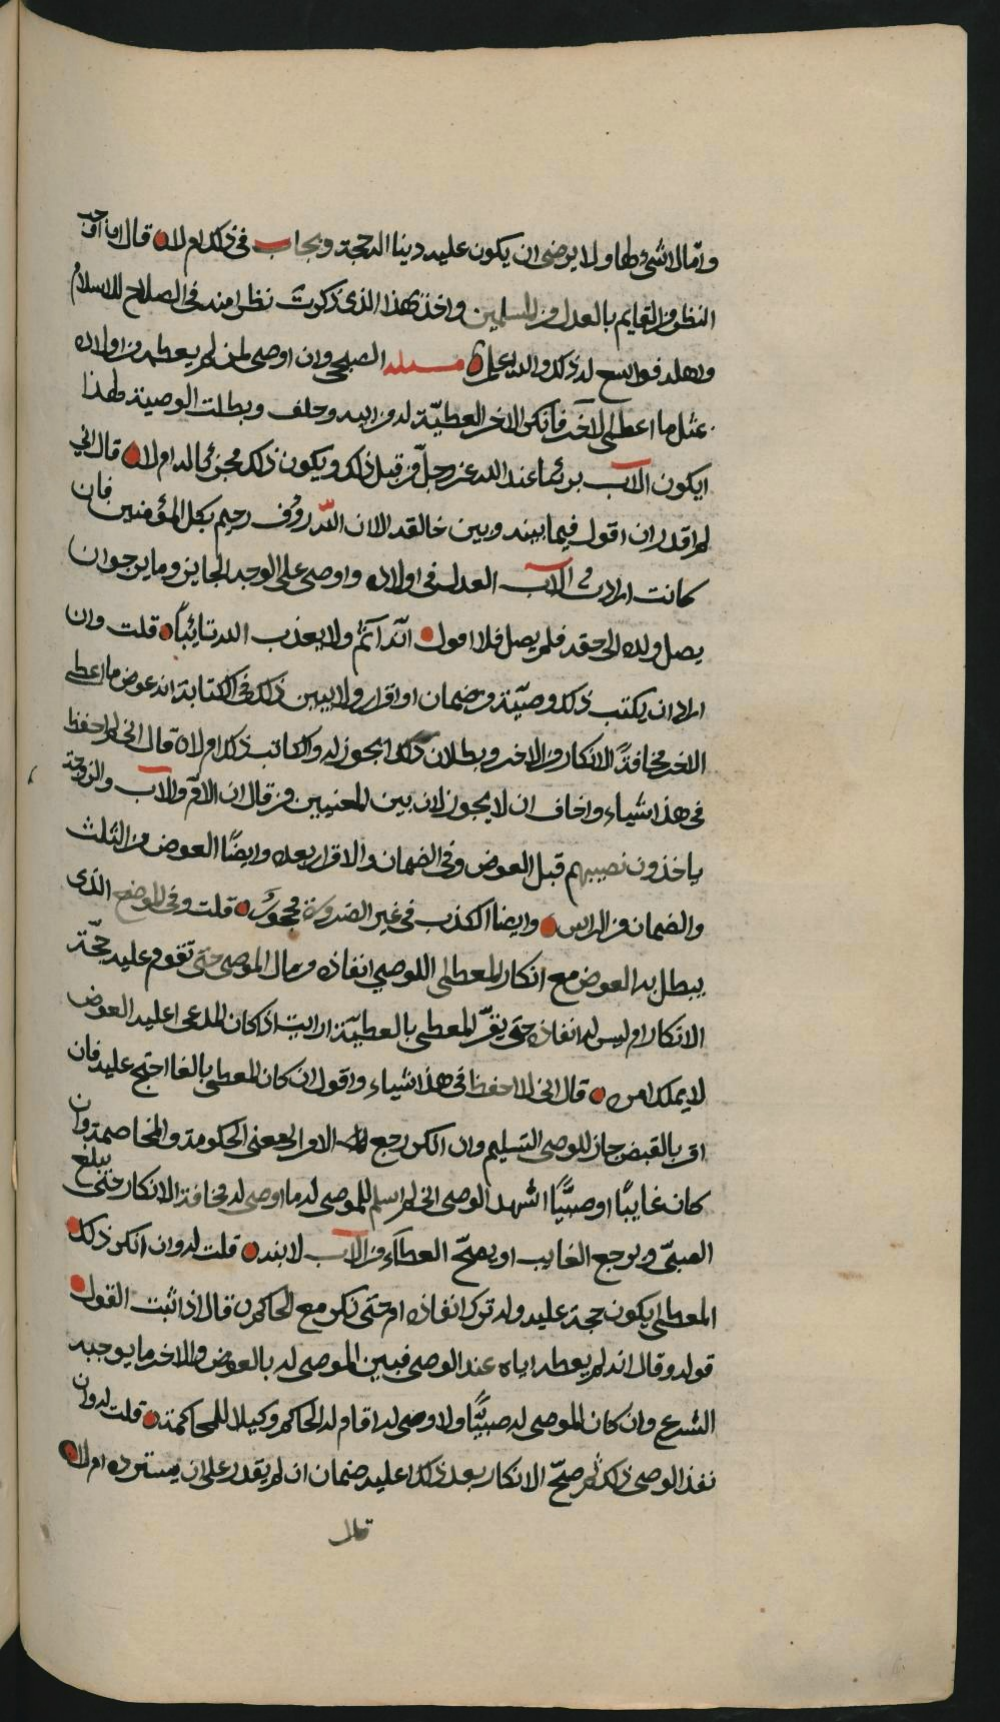 واما لا شيء لها ولا يرضى ان يكون عليه دينا الا بحجة ويجاب في ذلك ام لا قال اما اوجب
النظر من القايم بالعدل من المسلمين واخذ بهذا الذى ذكرت نظرا منه في الصلاح للاسلام
واهله فواسع له ذلك والله اعلم مسئله الصبحي وان اوصى لمن لم يعطه من اولاده
بمثل ما اعطى الآخر فانكر الاخر العطيّة له من ابيه وحلف وبطلت الوصية لهذا
ايكون الآب بريئا عند الله عز وجلّ من قبل ذلك ويكون ذلك مجزئا له ام لا قال اني
لم اقدر ان اقول فيما بينه وبين خالقه الا ان الله رؤوف رحيم بكل المؤمنين فان
كانت ارادت الآب العدل في اولاده واوصى على الوجه الجايز وما يرجو ان
يصل ولده الى حقه فلم يصل فلا اقول انّه آثم ولا يعذب الله تائبًا قلت وان
اراد ان يكتب ذلك وصيّة من ضمان او اقرار ولا يبين ذلك في الكتابة انه عوض ما اعطى
الاخر مخافةً الانكار من الاخر وبطلان ذلك ايجوز له والكاتب ذلك ام لا قال اني لم احفظ
في هذا شياء واخاف ان لا يجوز لان بين المعنيين فرقا لان الامّ والآب والزوجة
ياخذون نصيبهم قبل العوض وفي الضمان والاقرار بعده وايضًا العوض من الثلث
والضمان من الراس وايضا الكذب في غير الضرورة محجور قلت وفي الموضع الذى
يبطل به العوض مع انكار المعطى اللوصي انفاذه من مال الموصى حتى تقوم عليه حجّة
الانكار ام ليس له انفاذه حتى يقرّ المعطى بالعطيّة ارايت اذا كان المدعى اعليه العوض
لا يملك امره قال اني لا احفظ في هذا شياء واقول ان كان المعطى بالغا احتج عليه فان
اقر بالقبض جاز للوصي التسليم وان انكر رجع الامر الى معنى الحكومة والمخاصمة وان
كان غايبًا او صبيًّا اشهد الوصي اني لم اسلم للموصى له ما اوصى له مخافة الانكار حتى يبلغ
الصبيّ ويرجع الغايب او يصحّ العطآء من الآب لابنه قلت له وان انكر ذلك
المعطى ايكون حجة عليه وله ترك انفاذه ام حتى نكر مع الحاكم قال اذا ثبت القول
قوله وقال انه لم يعطه اياه عند الوصي فبين الموصى له بالعوض والاخر ما يوجبه
الشرع وان كان الموصى له صبيًّا ولا وصى له اقام له الحاكم وكيلا للمحاكمة قلت له وان
نفذ الوصي ذلك ثم صحّ الانكار بعد ذلك اعليه ضمان ان لم يقدر على ان يسترده ام لا
قال